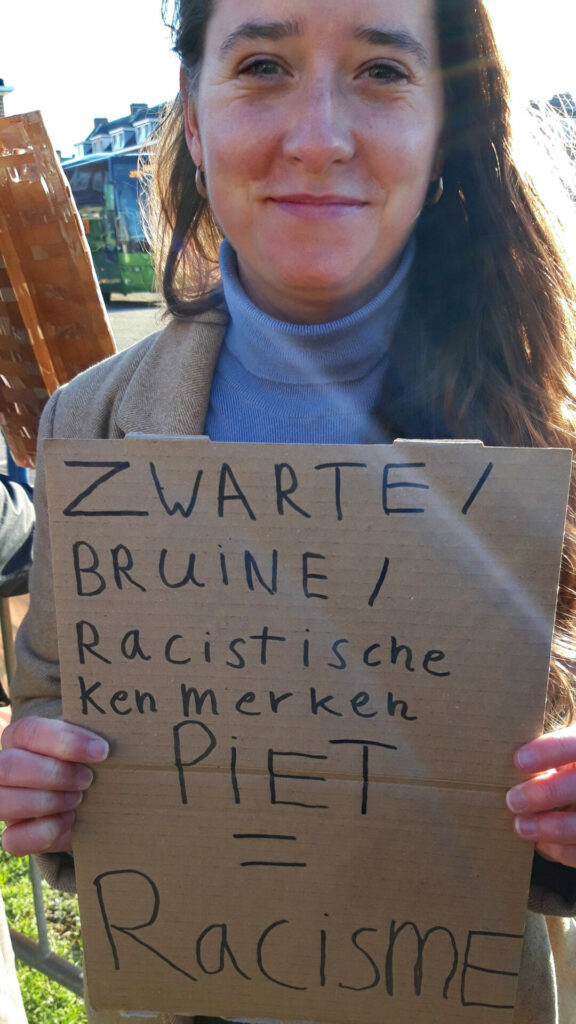 ZWARTE/
BRUiNE/
Racistische
Kenmerken
PiET
=
RacisME